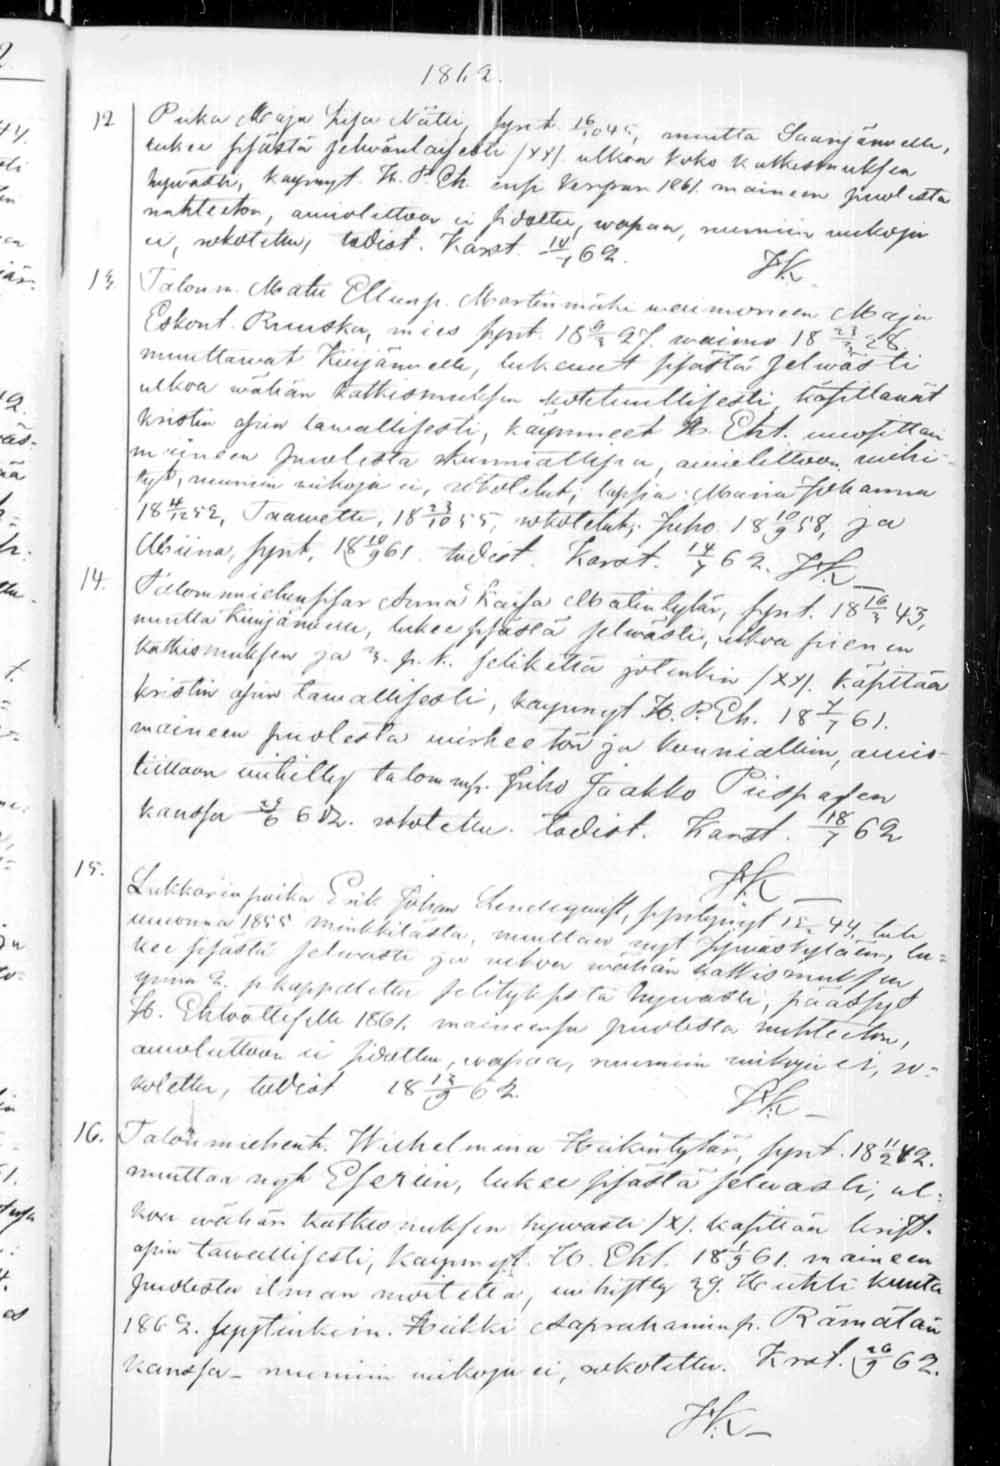 1862.
12 Piika Maja Lisa Nätti, synt. 16/10 45, muutta Saarijärvelle,
lukee sisästä selwänlaisesti /xx/. ulkoa koko katkesmuksen
hywästi, kaynnyt H. P. Eh. ensp kerran 1861. maineen puolesta
nuhteeton, awioliittoon ei sidottu, wapaa, muuin wikoja
ei, rokotettu, todist. Karst. 14/7 62.
JK
13 Talon m. Matti Eliasp. Martinmäki waimoneen Maja
Eskont. Ruuska, mies synt. 18 9/3 27. waimo 18 23/3 28.
muuttawat Kiijärwelle, lukeuat sisästä selwästi
ulkoa wähän katkismuksen kohtuullisesti, käsittäwät
kristin opin tawallisesti, käynneet H. Eht. wuosittain
maineen puolesta kunniallisia, awioliittoon wihi-
tyt, muuin wikoja ei, rokotetut, lapsia: Maria Johanna
18 4/12 52, Taawetti, 18 23/10 55, rokotetut, Juho 18 10/9 58, ja
Miina, synt. 18 10/9 61. todist. Karst. 14/7 62. JK
14. Talonmiehen tytär Anna Kaisa Matintytär, synt. 18 16/3 43,
muutta Kiwijärwelle, lukee sisästä selwästi, ulkoa pienen
katkismuksen ja 3. p. k. selikettä jotenkin /xx/. Käsittää
kristin opin tawallisesti, kaynnyt H. P. Eh. 18 7/7 61.
maineen puolesta wirheetön ja kunniallinen, awio-
liittoon wihitty talon mp. Juho Jaakko Piispasen
kanssa 29/6 62. rokotettu. todist. Karst. 18/7 62
JK
15. Lukkarin poika Erik Johan Lendeqwist, syntynyt 15/2 44, tuli
wuonna 1855 Minkkilästä, muuttaa nyt Jywäskylään, lu-
kee sisästä selwasti ja ulkoa wähän katkismuksen
ynnä 2. p kappaletta selityksistä hywästi, päässyt
H. Ehtoolliselle 1861. maineensa puolesta nuhteeton,
awioliittoon ei sidottu, wapaa, muuin wikoja ei, ro-
kotettu, todist 18 13/9 62.
JK
16. Talonmiehen t. Wilhelmina Heikintytär, synt. 18 11/2 42.
muuttaa nyt Eseriin, lukee sisästä selwasti, ul-
koa wähän katkismuksen hywasti /x/. kasittää krist.
opin tawallisesti, kaynnyt H. Eht. 18 1/9 61. maineen
puolesta ilman moitetta, 29. Huhti kuuta
1862. Heikki Aaprahamin p. Rämätän
kanssa - muuin wikoja ei, rokotettu. Krst. 26/9 62.
JK